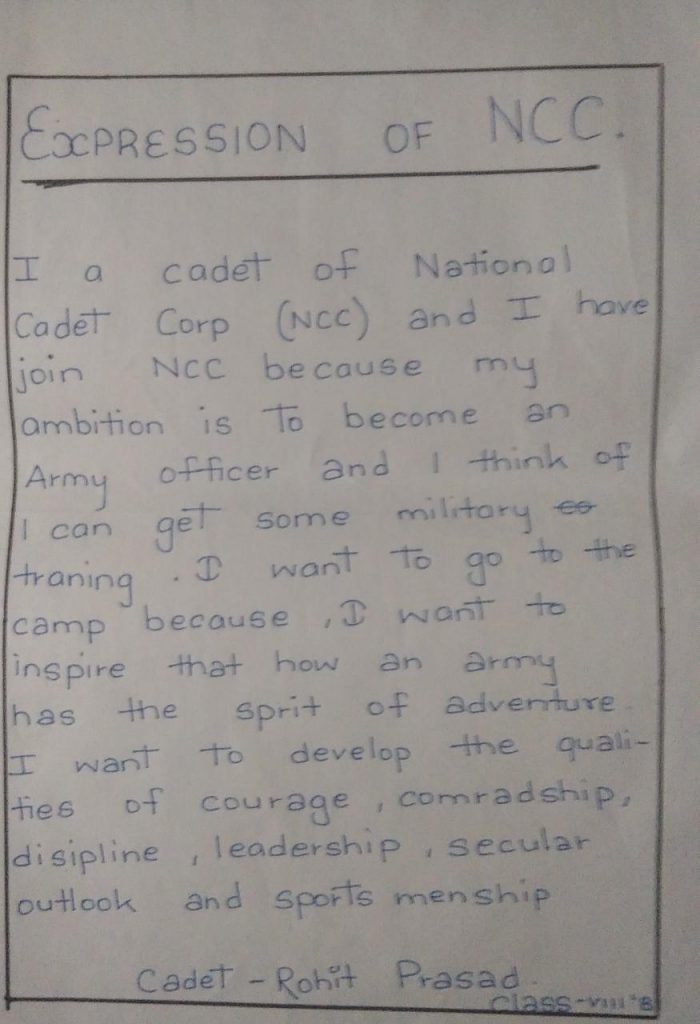 EXPRESSION OF NCC.
I a cadet of National
Cadet Corp (NCC) and I have
join NCC because my
ambition is to become an
Army officer and I think of
I can get some military
traning . I want to go to the
camp because , I want to
inspire that how an army
has the sprit of adventure.
I want to develop the quali-
ties of courage , comradship,
disipline , leadership , secular
outlook and sports menship
Cadet - Rohit Prasad.
Class-VIII 'B'